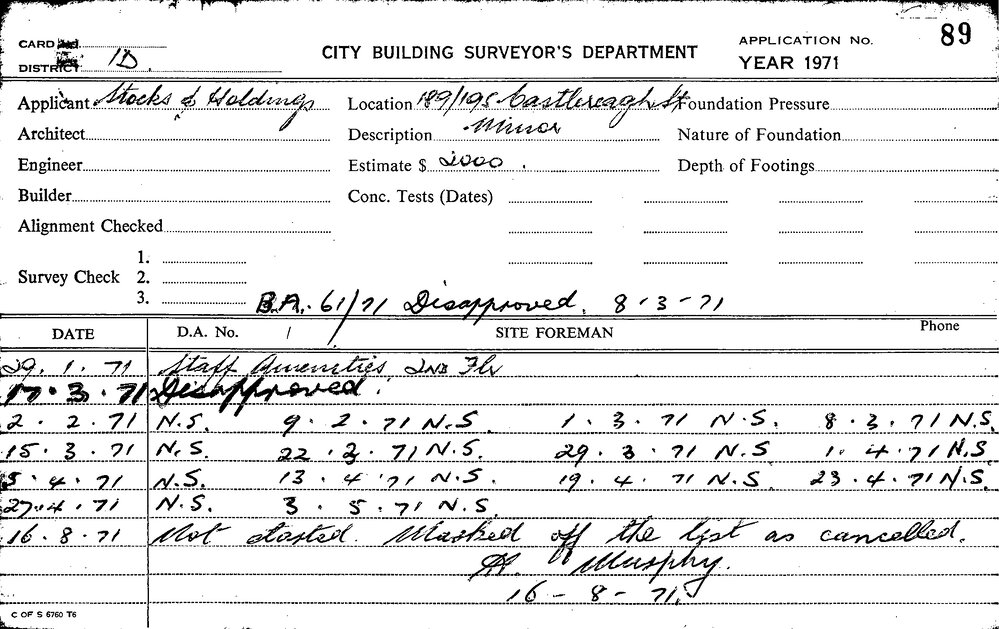 89
CARD
DISTRICT 1D.
CITY BUILDING SURVEYOR'S DEPARTMENT
APPLICATION No.
YEAR 1971
Applicant Stocks & Holdings Location 189/195 Castlereagh St Foundation Pressure
Architect Description Minor Nature of Foundation
Engineer Estimate $ 2000. Depth of Footings
Builder Conc. Tests (Dates)
Alignment Checked
1.
Survey Check 2.
3.
B.A. 61/71 Disapproved. 8-3-71
DATE D.A. No. / SITE FOREMAN Phone
29.1.71 Staff Amenities 2nd Flr
17.3.71 Disapproved.
2.2.71 N.S. 9.2.71 N.S. 1.3.71 N.S. 8.3.71 N.S.
15.3.71 N.S. 22.3.71 N.S. 29.3.71 N.S. 1.4.71 N.S
5.4.71 N.S. 13.4.71 N.S. 19.4.71 N.S. 23.4.71 N.S.
27.4.71 N.S. 3.5.71 N.S.
16.8.71 Not started. Marked off the list as cancelled.
Murphy.
16-8-71.
C OF S 6760 T6